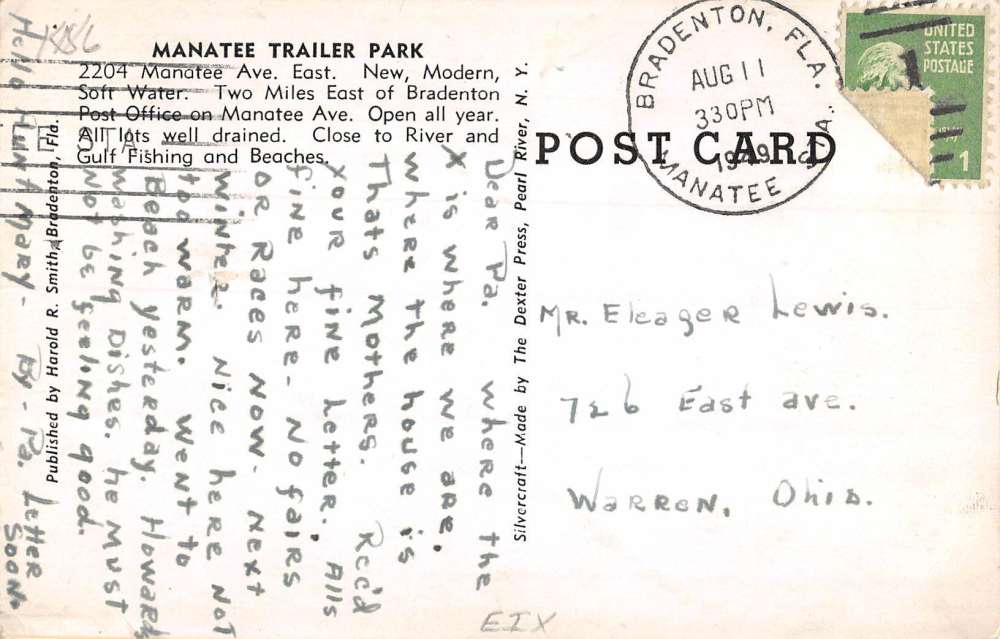 1486
MANATEE TRAILER PARK
2204 Manatee Ave. East. New, Modern,
Soft Water. Two Miles East of Bradenton
Post Office on Manatee Ave. Open all year.
All lots well drained. Close to River and
Gulf Fishing and Beaches.
Dear Pa. where the
X is where we are.
where the house is
Thats Mothers. Rec'd
your fine letter. Alls
fine here. No fairs
or Races Now. Next
winter. Nice here not
too warm. went to
Beach yesterday. Howard
washing Dishes. he must
not be feeling good.
Hello Aunt Mary - By - Pa. Letter
Soon.
Published by Harold R. Smith, Bradenton, Fla.
Silvercraft—Made by The Dexter Press, Pearl River, N. Y.
POST CARD
BRADENTON, FLA.
AUG 11
330PM
1949
MANATEE STA.
UNITED
STATES
POSTAGE
1
Mr. Eleager Lewis.
726 East ave.
Warren, Ohio.
EIX